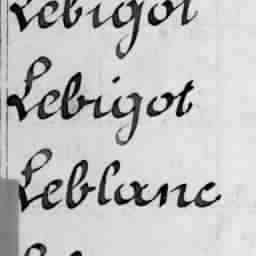 Lebigot
Lebigot
Leblanc